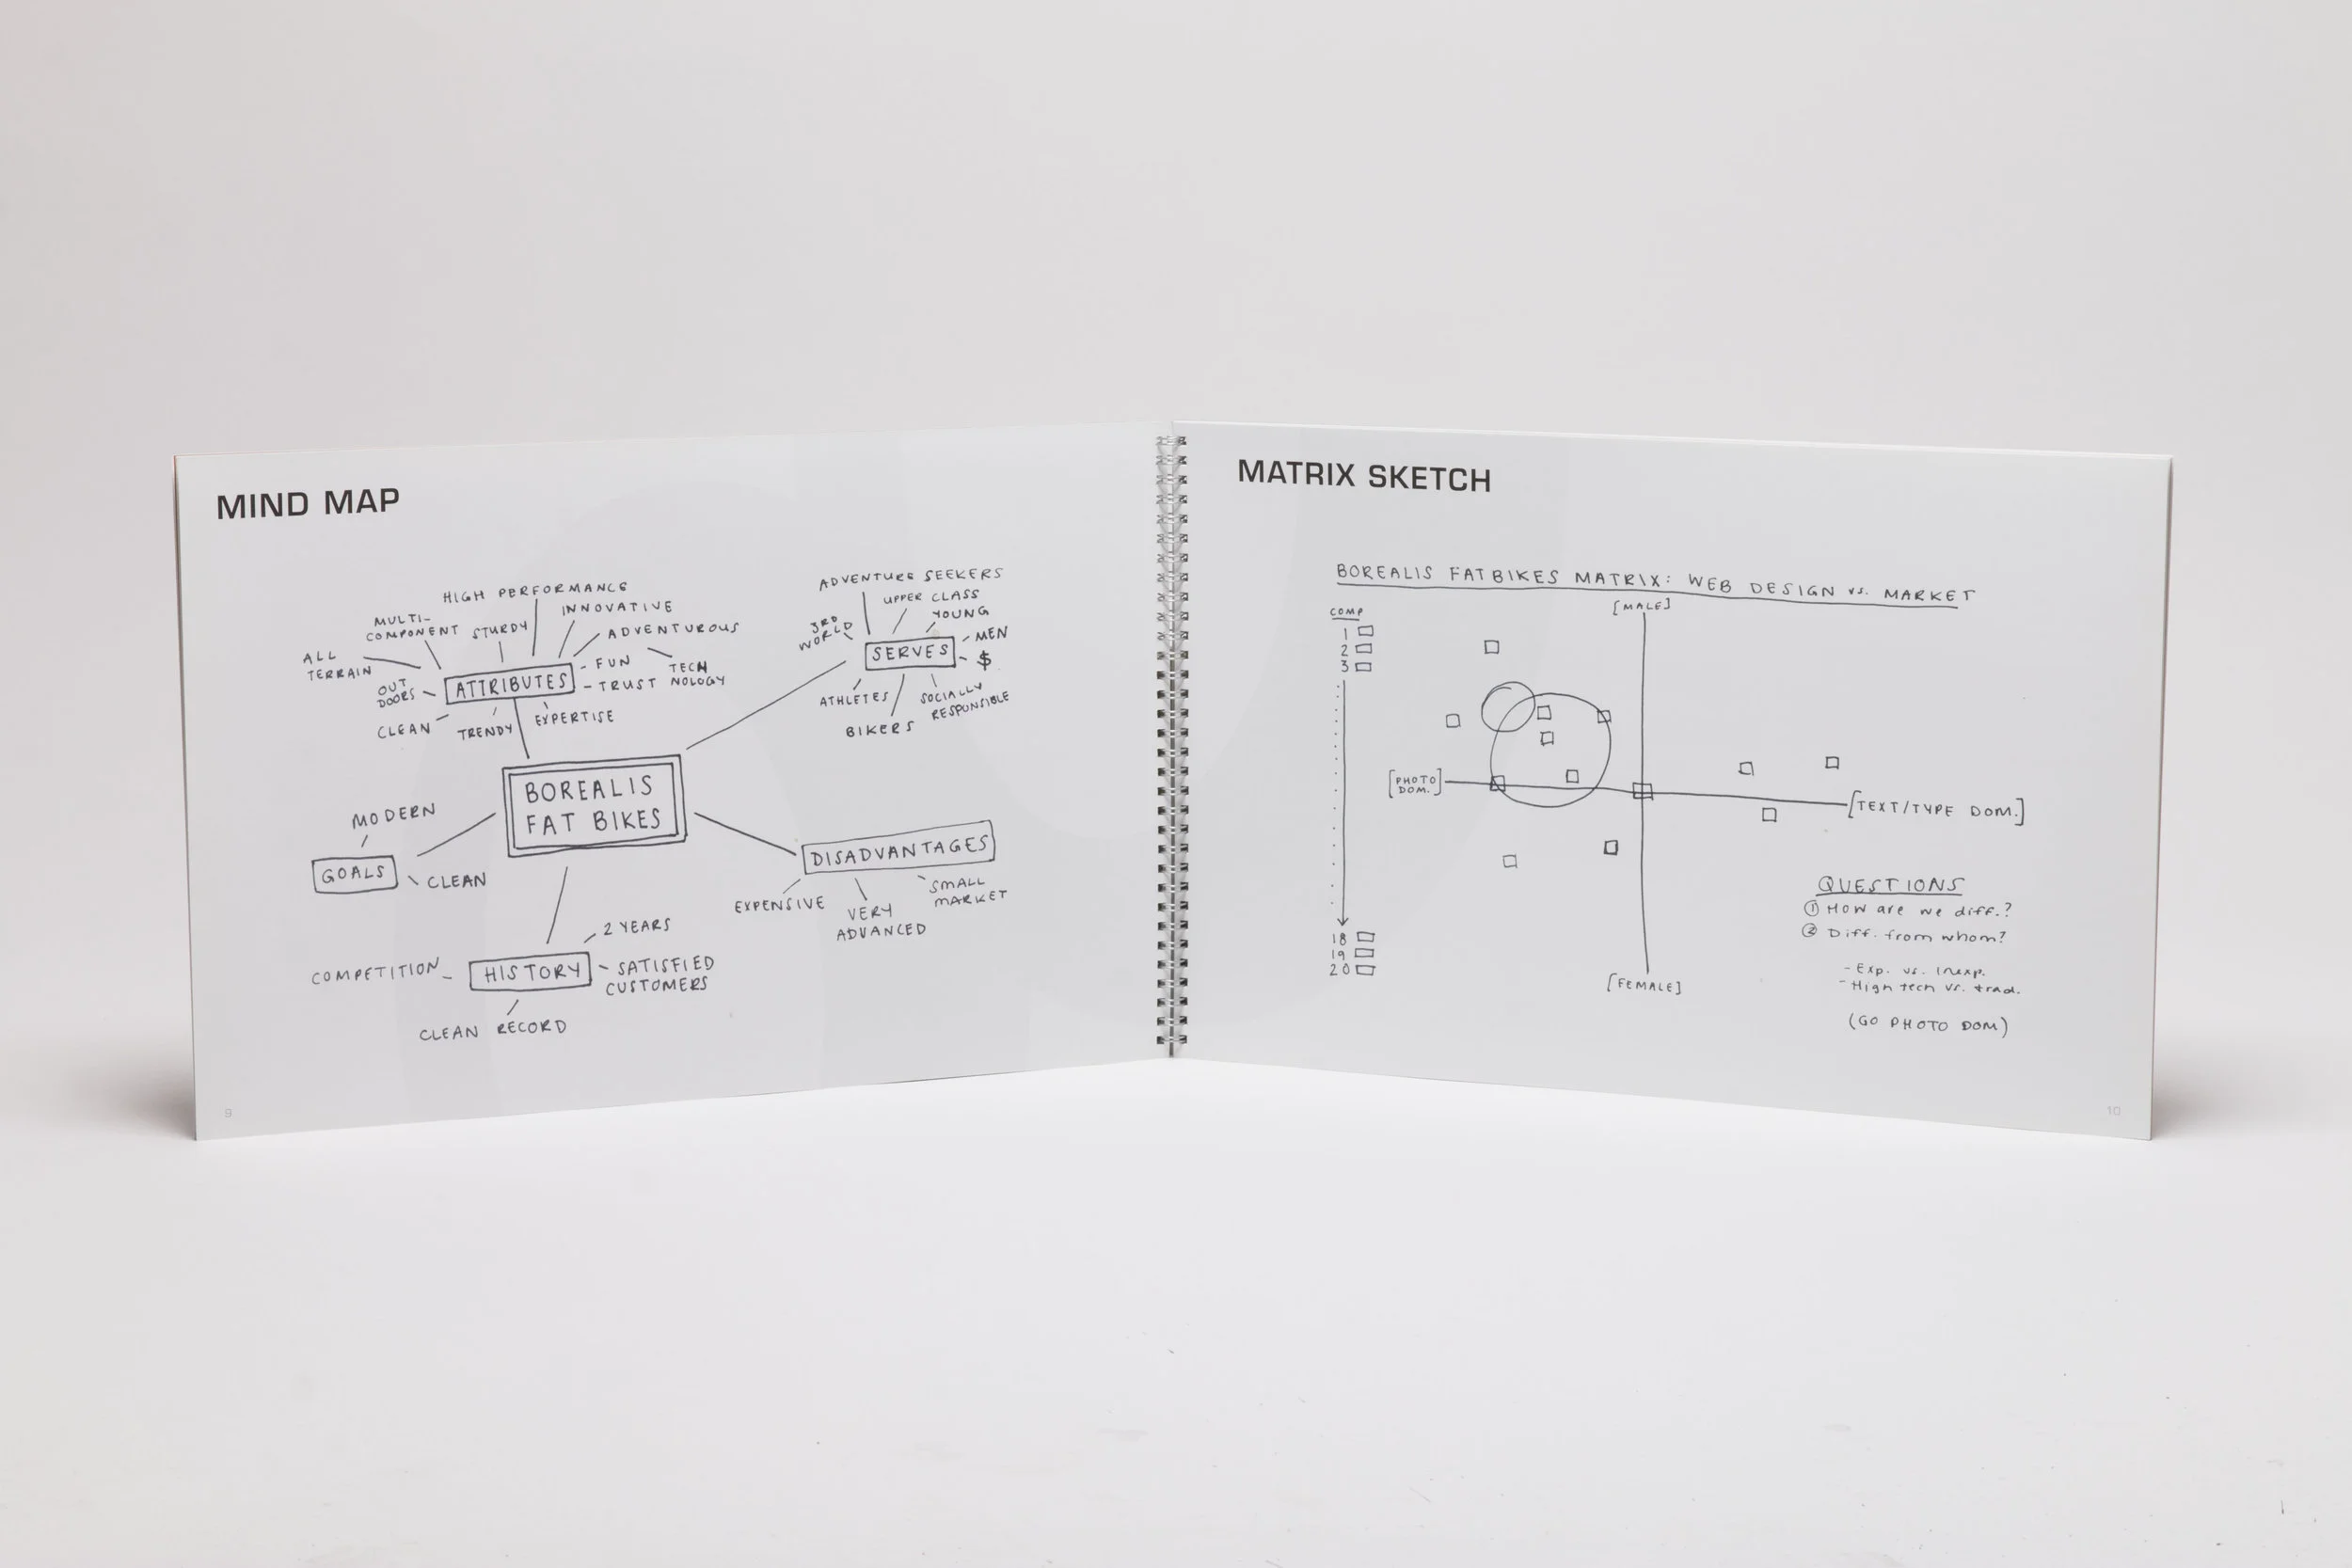 MIND MAP
HIGH PERFORMANCE
INNOVATIVE
MULTI-
COMPONENT
STURDY
ADVENTUROUS
ALL
TERRAIN
FUN
TECH
NOLOGY
TRUST
OUT
DOORS
ATTRIBUTES
CLEAN
TRENDY
EXPERTISE
ADVENTURE SEEKERS
UPPER CLASS
YOUNG
3RD
WORLD
MEN
SERVES
$
ATHLETES
SOCIALLY
RESPONSIBLE
BIKERS
BOREALIS
FAT BIKES
MODERN
GOALS
CLEAN
DISADVANTAGES
EXPENSIVE
VERY
ADVANCED
SMALL
MARKET
2 YEARS
COMPETITION
HISTORY
SATISFIED
CUSTOMERS
CLEAN RECORD
9
MATRIX SKETCH
BOREALIS FATBIKES MATRIX: WEB DESIGN vs. MARKET
COMP
1
2
3
18
19
20
[MALE]
[PHOTO
DOM.]
[TEXT/TYPE DOM.]
[FEMALE]
QUESTIONS
① How are we diff.?
② Diff. from whom?
- Exp. vs. Inexp.
- High tech vs. trad.
(GO PHOTO DOM)
10